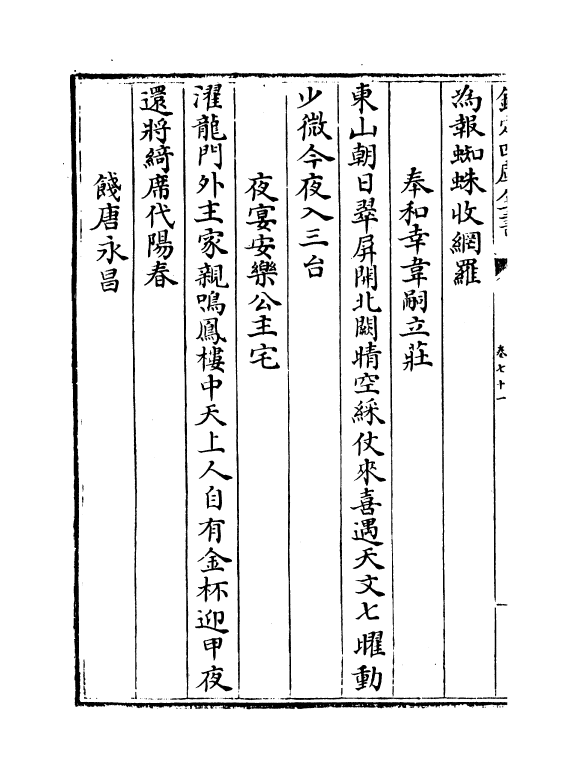 欽定四庫全書
卷七十一
為報蜘蛛收網羅
奉和幸韋嗣立莊
東山朝日翠屏開北闕晴空綵仗來喜遇天文七曜動
少微今夜入三台
夜宴安樂公主宅
濯龍門外主家親鳴鳳樓中天上人自有金杯迎甲夜
還將綺席代陽春
餞唐永昌